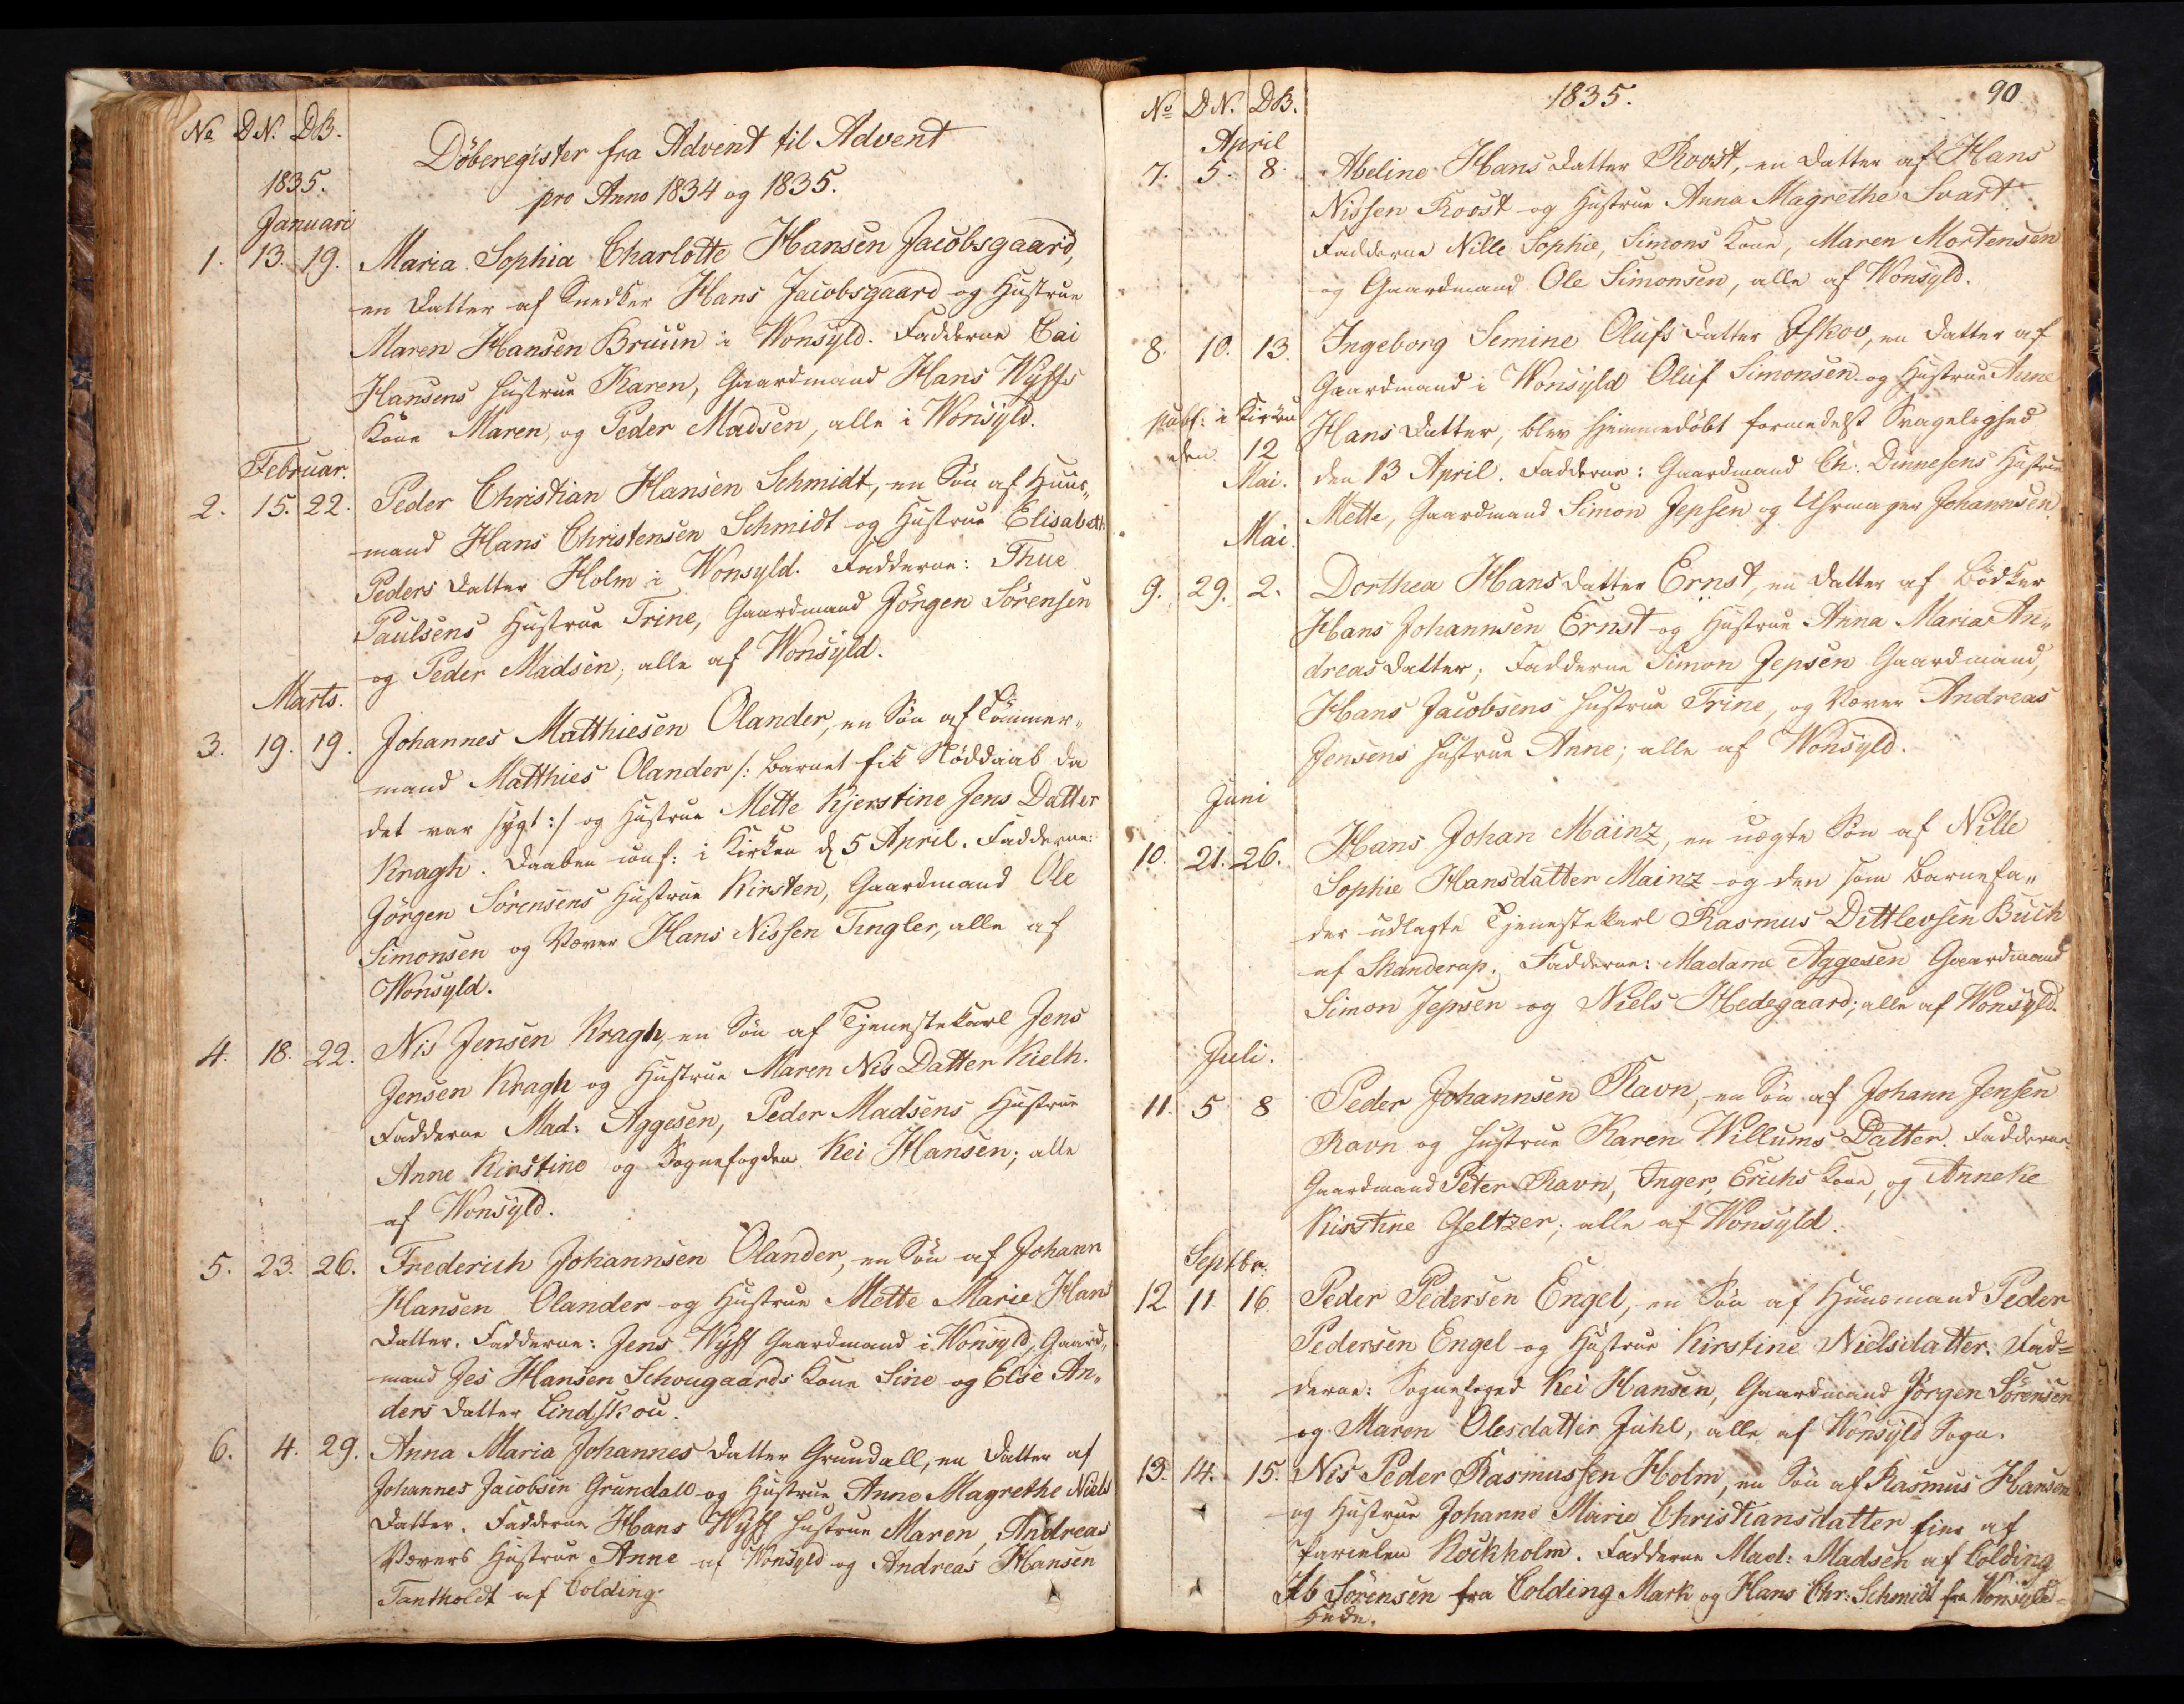 No DN. DB.
Döberegister fra Advent til Advent
pro Anno 1834 og 1835.
1835.
Januari
1. 13. 19. Maria Sophia Charlotte Hansen Jacobsgaard,
en Datter af Snedker Hans Jacobsgaard og Hustrue
Maren Hansen Bruun i Wonsyld. Fadderne Cai
Hansens Hustrue Karen, Gaardmand Hans Wyffs
Kone Maren, og Peder Madsen, alle i Wonsyld.
Februar.
2. 15. 22. Peder Christian Hansen Schmidt, en Sön af Huus„
mand Hans Christensen Schmidt og Hustrue Elisabeth
Peders Datter Holm i Wonsyld. Fadderne: Thue
Paulsens Hustrue Trine, Gaardmand Jörgen Sörensen
og Peder Madsen, alle af Wonsyld.
Marts.
3. 19. 19. Johannes Matthiesen Olander, en Sön af Tömmer„
mand Matthies Olander /: Barnet fik Nöddaab da
det var sygt :/ og Hustrue Mette Kjerstine Jens Datter
Kragh. Daaben conf: i Kirken d 5 April. Fadderne:
Jörgen Sörensens Hustrue Kirsten, Gaardmand Ole
Simonsen og Væver Hans Nissen Tingler, alle af
Wonsyld.
4. 18. 22. Nis Jensen Kragh, en Sön af Tjenestekarl Jens
Jensen Kragh og Hustrue Maren Nis Datter Kielh.
Fadderne Mad: Aggesen, Peder Madsens Hustrue
Anne Kirstine og Sognefogden Kei Hansen; alle
af Wonsyld.
5. 23. 26. Frederich Johannsen Olander, en Sön af Johann
Hansen Olander og Hustrue Mette Marie Hans
Datter. Fadderne: Jens Wyff Gaardmand i Wonsyld, Gaard„
mand Jes Hansen Schougaards Kone Sine og Else An„
ders Datter Lindskou.
6. 4. 29. Anna Maria Johannes Datter Grundall, en Datter af
Johannes Jacobsen Grundall og Hustrue Anne Magrethe Niels
Datter. Fadderne Hans Wyff Hustrue Maren, Andreas
Vævers Hustrue Anne af Wonsyld og Andreas Hansen
Tantholdt af Colding.
No DN. DB. 1835. 90
April
7. 5. 8. Abeline Hans Datter Roost, en Datter af Hans
Nissen Roost og Hustrue Anna Magrethe Svart
Fadderne Nille Sophie, Simons Kone, Maren Mortensen
og Gaardmand Ole Simonsen, alle af Wonsyld.
8. 10. 13. Ingeborg Semine Olufs Datter Iskov, en Datter af
Gaardmand i Wonsyld Oluf Simonsen og Hustrue Anne
publ: i Kirken Hans Datter, blev hjemmedöbt formedelst Svagelighed
den 12 Mai. den 13 April. Fadderne: Gaardmand Ch: Dinnesens Hustrue
Mette, Gaardmand Simon Jepsen og Uhrmager Johannsen.
Mai.
9. 29. 2. Dorthea Hans Datter Ernst, en Datter af Bödker
Hans Johannsen Ernst og Hustrue Anna Maria An„
dreas Datter; Fadderne Simon Jepsen Gaardmand,
Hans Jacobsens Hustrue Trine, og Væver Andreas
Jensens Hustrue Anne; alle af Wonsyld.
Juni
10. 21. 26. Hans Johan Mainz, en uægte Sön af Nille
Sophie Hansdatter Mainz og den som Barnefa„
der udlagte Tjenestekarl Rasmus Dittlevsen Buch
af Skanderup. Fadderne: Madame Aggesen Gaardmand
Simon Jepsen og Niels Hedegaard; alle af Wonsyld.
Juli.
11. 5 8 Peder Johannsen Ravn, en Sön af Johann Jensen
Ravn og Hustrue Karen Willums Datter. Fadderne
Gaardmand Peter Ravn, Inger, Erichs Kone, og Anneke
Kirstine Geltzer; alle af Wonsyld.
Septbr.
12 11. 16. Peder Pedersen Engel, en Sön af Huusmand Peder
Pedersen Engel og Hustrue Kirstine Nielsdatter. Fad=
derne: Sognefoged Kei Hansen, Gaardmand Jörgen Sörensen
og Maren Olesdatter Juhl, alle af Wonsyld Sogn.
13. 14. 15. Nis Peder Rasmussen Holm, en Sön af Rasmus Hansen
og Hustrue Johanne Marie Christiansdatter af
Parcelen Kockholm. Fadderne Mad: Madsen af Colding
Ib Sörensen fra Colding Mark og Hans Chr: Schmidt fra Wonsyld=
Hede.